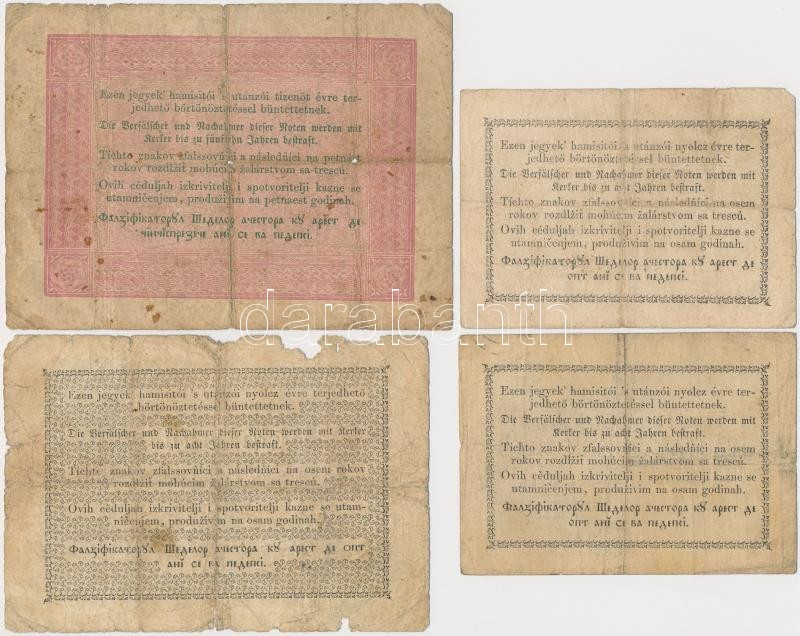 Ezen jegyek' hamisitói 's utánzói tizenöt évre ter-
jedhető börtönöztetéssel büntettetnek.
Die Verfälscher und Nachahmer dieser Noten werden mit
Kerker bis zu fünfzehn Jahren bestraft.
Tichto znakov zfalssovňíci a následňíci na petnást
rokov rozdlžit mohúcim žalárstvom sa trescú.
Ovih céduljah izkrivitelji i spotvoritelji kazne se
utamničenjem, produživim na petnaest godinah.
Фалзіфікаторꙋл Шеделор ачестора кꙋ арест де
чінчіспрезече анї се ва педепсі.
Ezen jegyek' hamisitói 's utánzói nyolcz évre ter-
jedhető börtönöztetéssel büntettetnek.
Die Verfälscher und Nachahmer dieser Noten werden mit
Kerker bis zu acht Jahren bestraft.
Tichto znakov zfalssovňíci a následňíci na osem
rokov rozdlžit mohúcim žalárstvom sa trescú.
Ovih céduljah izkrivitelji i spotvoritelji kazne se
utamničenjem, produživim na osam godinah.
Фалзіфікаторꙋл Шеделор ачестора кꙋ арест де
опт анї се ва педепсі.
darabanth
Ezen jegyek' hamisitói 's utánzói nyolcz évre terjedhető
börtönöztetéssel büntettetnek.
Die Verfälscher und Nachahmer dieser Noten werden mit Kerker
bis zu acht Jahren bestraft.
Tichto znakov zfalssovňíci a následňíci na osem rokov
rozdlžit mohúcim žalárstvom sa trescú.
Ovih céduljah izkrivitelji i spotvoritelji kazne se utam-
ničenjem, produživim na osam godinah.
Фалзіфікаторꙋл Шеделор ачестора кꙋ арест де опт
анї се ва педепсі.
Ezen jegyek' hamisitói 's utánzói nyolcz évre ter-
jedhető börtönöztetéssel büntettetnek.
Die Verfälscher und Nachahmer dieser Noten werden mit
Kerker bis zu acht Jahren bestraft.
Tichto znakov zfalssovňíci a následňíci na osem
rokov rozdlžit mohúcim žalárstvom sa trescú.
Ovih céduljah izkrivitelji i spotvoritelji kazne se
utamničenjem, produživim na osam godinah.
Фалзіфікаторꙋл Шеделор ачестора кꙋ арест де
опт анї се ва педепсі.